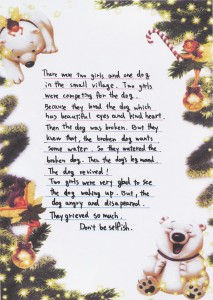 There were Two girls and one dog
in the small village. Two girls
were competing for the dog.
Because they loved the dog which
has beautiful eyes and kind heart.
Then the dog was broken. But they
knew that, the broken dog wants
some water. So they watered the
broken dog. Then the dog's
The dog revived!
Two girls were very glad to see
the dog waking up. But, the
dog angry and disapeared.
They grieved so much.
Don't be selfish.